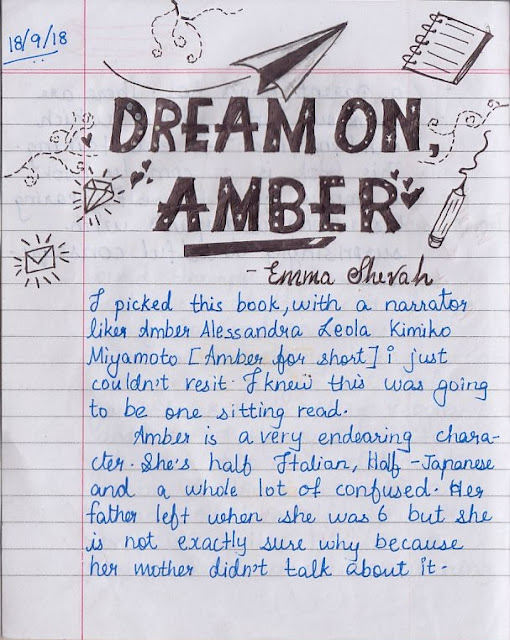 18/9/18
DREAM ON,
AMBER
- Emma Shevah
I picked this book, with a narrator
liker Amber Alessandra Leola Kimiko
Miyamoto [Amber for short] i just
couldn't resit. I knew this was going
to be one sitting read.
Amber is a very endearing chara-
cter. She's half Italian, Half-Japanese
and a whole lot of confused. Her
father left when she was 6 but she
is not exactly sure why because
her mother didn't talk about it.